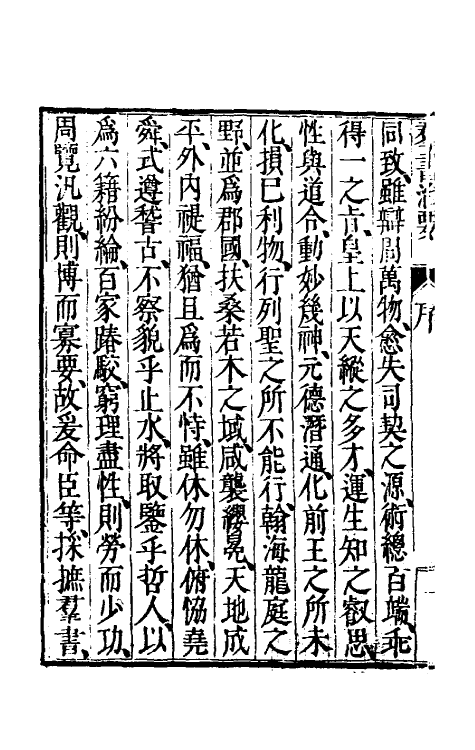 序
同致、雖辯周萬物、愈失司契之源、術總百端、乖
得一之旨、皇上以天縱之多才、運生知之叡思、
性與道合、動妙幾神、元德潛通、化前王之所未
化、損已利物、行列聖之所不能行、翰海龍庭之
野、並爲郡國、扶桑若木之域、咸襲纓冕、天地成
平、外內禔福、猶且爲而不恃、雖休勿休、俯協堯
舜、式遵稽古、不察貌乎止水、將取鑒乎哲人、以
爲六籍紛綸、百家踳駮、窮理盡性、則勞而少功、
周覽汎觀、則博而寡要、故爰命臣等、採摭羣書、